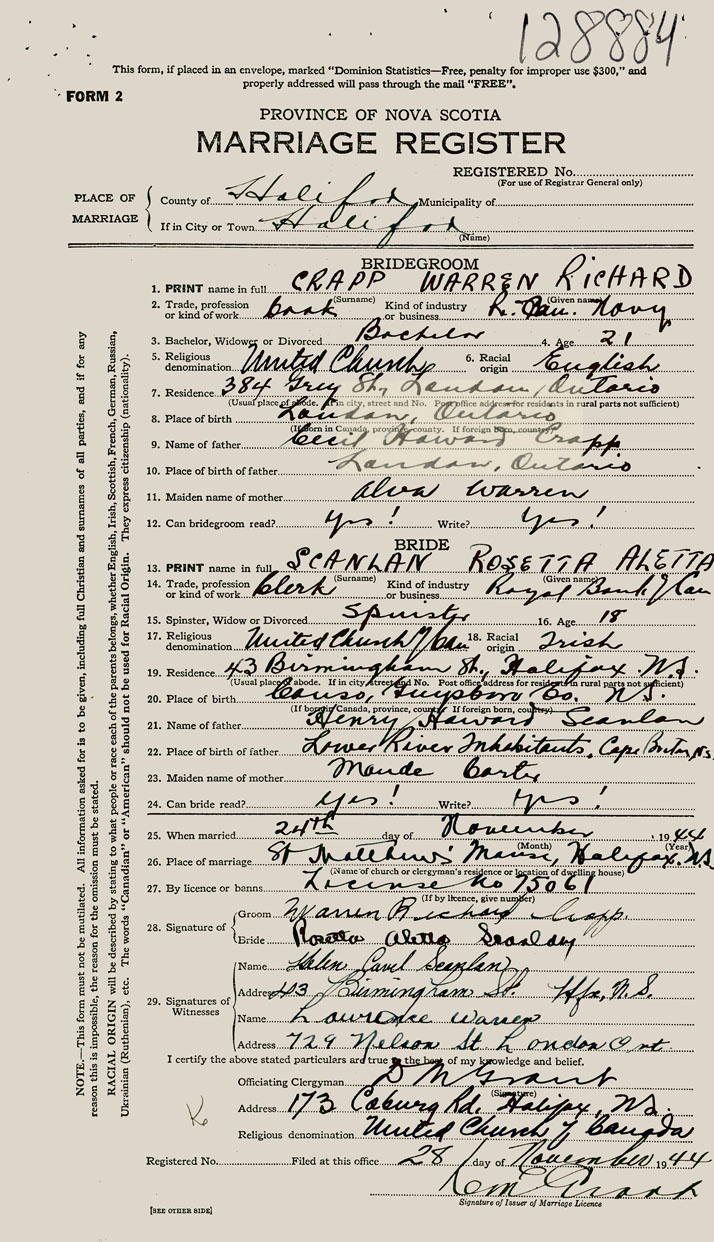 128884
This form, if placed in an envelope, marked "Dominion Statistics—Free, penalty for improper use $300," and
properly addressed will pass through the mail "FREE".
FORM 2
PROVINCE OF NOVA SCOTIA
MARRIAGE REGISTER
REGISTERED No.
(For use of Registrar General only)
PLACE OF MARRIAGE
County of Halifax Municipality of
If in City or Town Halifax
(Name)
BRIDEGROOM
1. PRINT name in full CRAPP WARREN RICHARD
(Surname) (Given name)
2. Trade, profession or kind of work Cook Kind of industry or business R. Can. Navy
3. Bachelor, Widower or Divorced Bachelor 4. Age 21
5. Religious denomination United Church 6. Racial origin English
7. Residence 384 Grey St., London, Ontario
(Usual place of abode. If in city, street and No. Post office address for residents in rural parts not sufficient)
8. Place of birth London, Ontario
(If born in Canada, province, county. If foreign born, country)
9. Name of father Cecil Howard Crapp
10. Place of birth of father London, Ontario
11. Maiden name of mother Alva Warren
12. Can bridegroom read? Yes! Write? Yes!
BRIDE
13. PRINT name in full SCANLAN ROSETTA ALETTA
(Surname) (Given name)
14. Trade, profession or kind of work Clerk Kind of industry or business Royal Bank of Can
15. Spinster, Widow or Divorced Spinster 16. Age 18
17. Religious denomination United Church of Can 18. Racial origin Irish
19. Residence 43 Birmingham St., Halifax N.S.
(Usual place of abode. If in city, street and No. Post office address for residents in rural parts not sufficient)
20. Place of birth Canso, Guysboro Co. N.S.
(If born in Canada, province, county. If foreign born, country)
21. Name of father Henry Howard Scanlan
22. Place of birth of father Lower River Inhabitants, Cape Breton, N.S.
23. Maiden name of mother Maude Carter
24. Can bride read? Yes! Write? Yes!
25. When married 24th day of November, 1944
(Month) (Year)
26. Place of marriage St Matthews' Manse, Halifax, N.S.
(Name of church or clergyman's residence or location of dwelling house)
27. By licence or banns License No 75061
(If by licence, give number)
28. Signature of
Groom Warren Richard Crapp
Bride Rosetta Aletta Scanlan
29. Signatures of Witnesses
Name Helen Cavel Scanlan
Address 43 Birmingham St. Hfx, N.S.
Name Lawrence Warren
Address 729 Nelson St London Ont
I certify the above stated particulars are true to the best of my knowledge and belief.
Officiating Clergyman D M Grant
(Signature)
Address 173 Coburg Rd. Halifax, N.S.
Religious denomination United Church of Canada
Registered No. Filed at this office 28 day of November 1944
Signature of Issuer of Marriage Licence
[SEE OTHER SIDE]
NOTE.—This form must not be mutilated. All information asked for is to be given, including full Christian and surnames of all parties, and if for any
reason this is impossible, the reason for the omission must be stated.
RACIAL ORIGIN will be described by stating to what people or race each of the parents belongs, whether English, Irish, Scottish, French, German, Russian,
Ukrainian (Ruthenian), etc. The words "Canadian" or "American" should not be used for Racial Origin. They express citizenship (nationality).